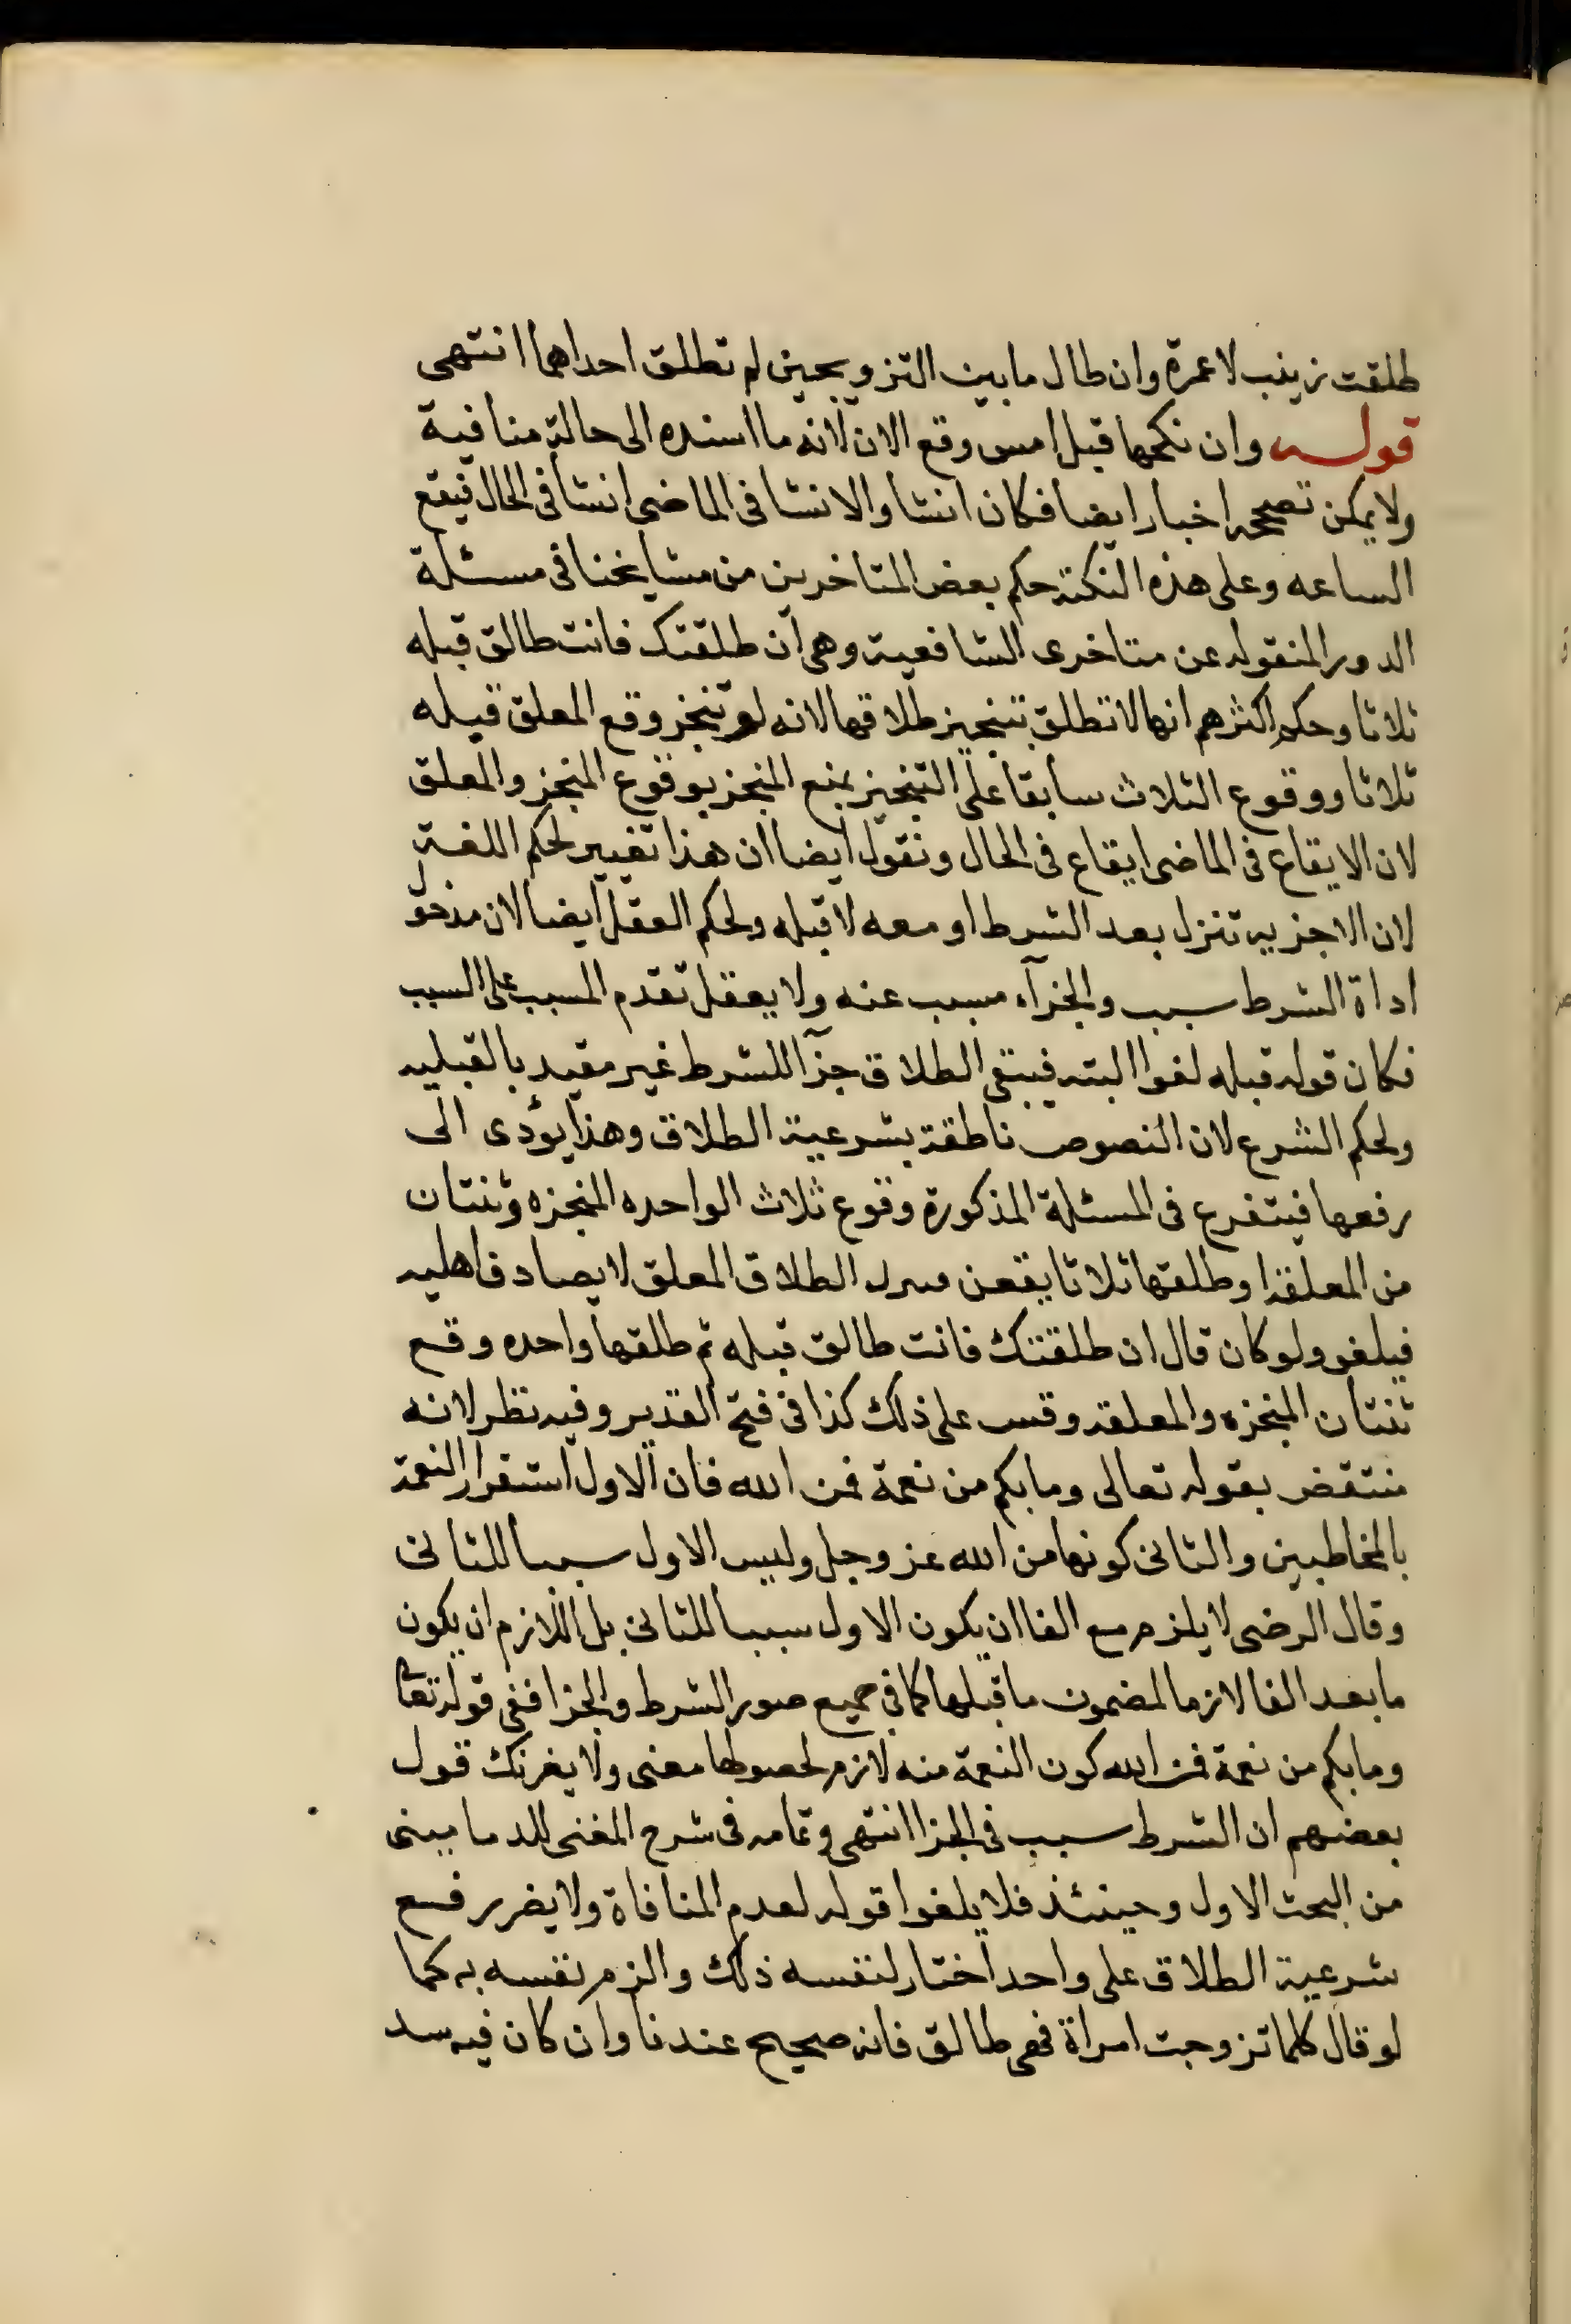 طلقت زينب لا عمرة وان طال ما بين التزويجين لم تطلق احداهما انتهى
قوله وان نكحها قبل امس وقع الان لانه ما اسنده الى حالة منافية
ولا يمكن تصححه اخبارا ايضا فكان انشا والانشا فى الماضى انشا فى الحال فيقع
الساعه وعلى هذه النكتة حكم بعض المتاخرين من مشايخنا فى مسئلة
الدور المنقوله عن متاخرى الشافعية وهى ان طلقتك فانت طالق قبله
ثلاثا وحكم اكثرهم انها لا تطلق بتنجيز طلاقها لانه لو تنجز وقع المعلق قبله
ثلاثا ووقوع الثلاث سابقا على التنجيز يمنع المنجز بوقوع المنجز والمعلق
لان الايقاع فى الماضى ايقاع فى الحال ونقول ايضا ان هذا تغيير لحكم اللغة
لان الاجزيه تنزل بعد الشرط او معه لا قبله ولحكم العقل ايضا لان مدخو
اداة الشرط سبب والجزآء مسبب عنه ولا يعقل تقدم المسبب على السبب
فكان قوله قبله لغوا البته فيبقى الطلاق جزآ للشرط غير مقيد بالقبليه
ولحكم الشرع لان النصوص ناطقة بشرعية الطلاق وهذا يؤدى الى
رفعها فيتفرع فى المسئلة المذكورة وقوع ثلاث الواحده المنجزه وثنتان
من المعلقة او طلقتها ثلاثا يقعن الطلاق المعلق لا يصادف اهليه
فيلغو ولو كان قال ان طلقتك فانت طالق قبله ثم طلقها واحده وقع
ثنتان المنجزه والمعلقه وقس على ذلك كذا فى فتح القدير وفيه نظر لانه
منتقض بقوله تعالى وما بكم من نعمة فمن الله فان الاول استقرار النعمة
بالمخاطبين والثانى كونها من الله عز وجل وليس الاول سببا للثانى
وقال الرضى لا يلزم مع الفا ان يكون الاول سببا للثانى بل اللازم ان يكون
ما بعد الفا لازما لمضمون ما قبلها كما فى جميع صور الشرط والجزا ففى قوله تعا
وما بكم من نعمة فمن الله كون النعمة منه لازم لحصولها معنى ولا يغرنك قول
بعضهم ان الشرط سبب فى الجزا انتهى وتمامه فى شرح المغنى للدمامينى
من البحث الاول وحينئذ فلا يلغوا قوله لعدم المنافاة ولا يضر رفع
شرعية الطلاق على واحد اختار لنفسه ذلك والزم نفسه به كما
لو قال كلما تزوجت امراة فهى طالق فانه صحيح عندنا وان كان فيه سد